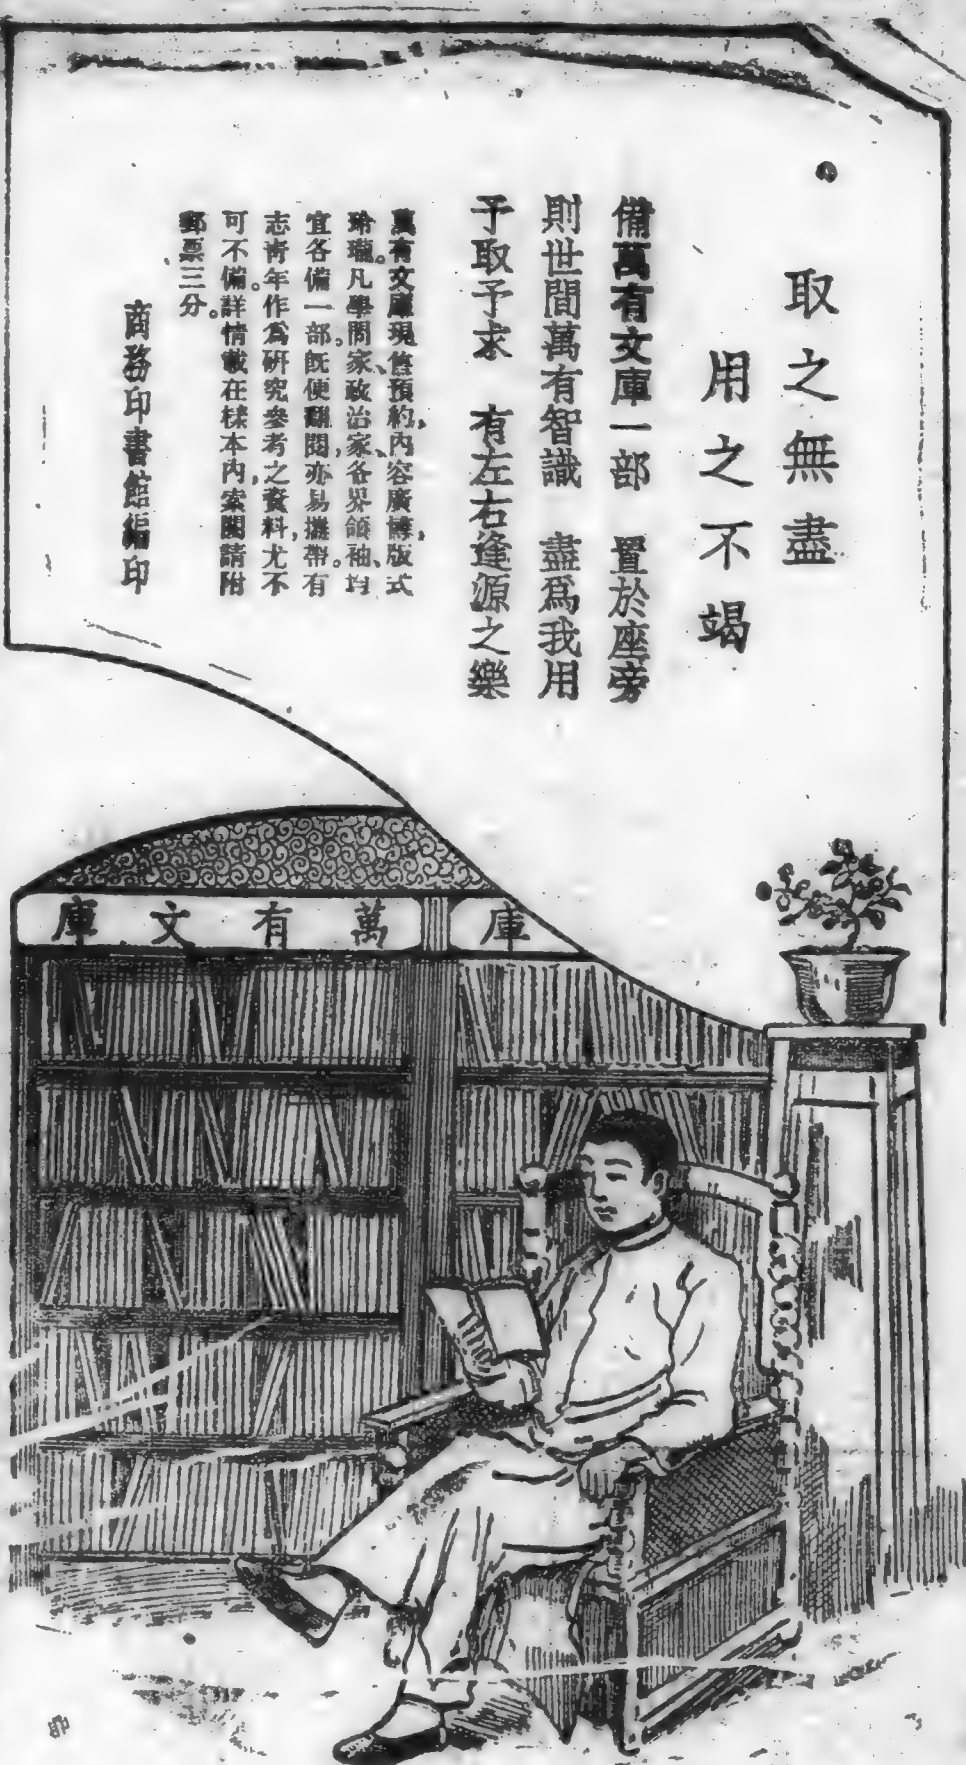 取之無盡
用之不竭
備萬有文庫一部　置於座旁
則世間萬有智識　盡爲我用
予取予求　有左右逢源之樂
萬有文庫現售預約，內容廣博，版式
玲瓏。凡學問家、政治家、各界領袖、均
宜各備一部，旣便翻閱，亦易攜帶。有
志靑年作爲研究參考之資料，尤不
可不備。詳情載在樣本內，索閱請附
郵票三分。
商務印書館編印
庫文有萬
庫